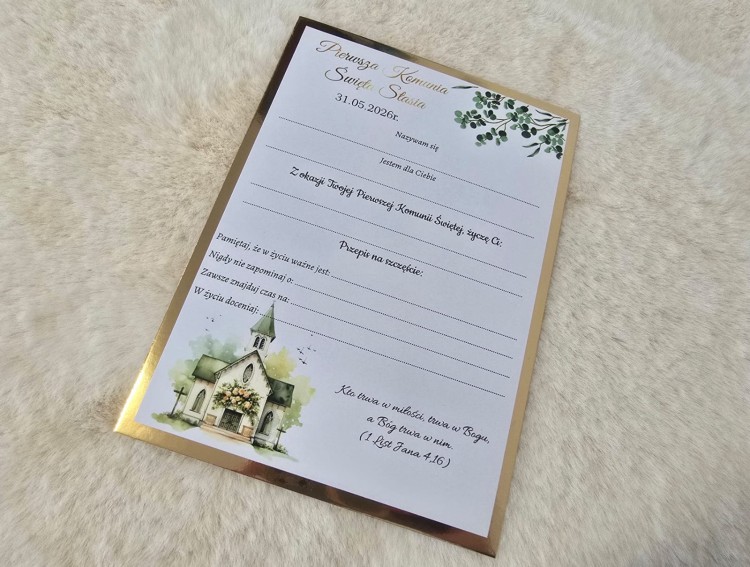 Pierwsza Komunia
Święta Stasia
31.05.2026r.
Nazywam się
Jestem dla Ciebie
Z okazji Twojej Pierwszej Komunii Świętej, życzę Ci:
Przepis na szczęście:
Pamiętaj, że w życiu ważne jest:
Nigdy nie zapominaj o:
Zawsze znajduj czas na:
W życiu doceniaj:
Kto trwa w miłości, trwa w Bogu,
a Bóg trwa w nim.
(1 List Jana 4,16)